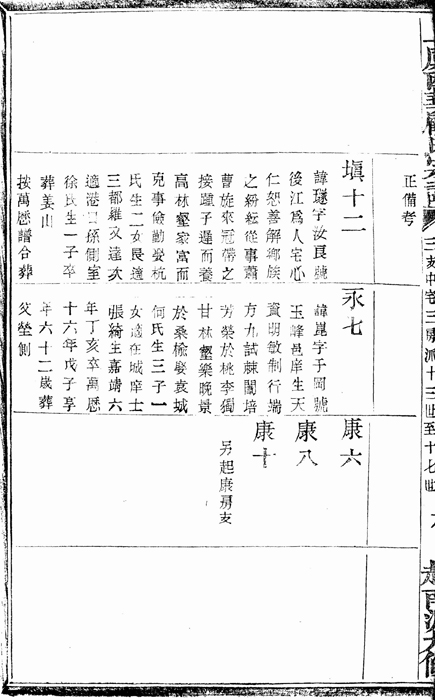 正備考
塡十二
諱璲字汝良號
後江爲人宅心
仁恕善解鄉族
之紛紜從事蕭
曹旋來冠帶之
接踵子遲而養
高林壑家富而
克事儉勤娶杭
氏生二女長適
三都羅文達次
適港口孫側室
徐氏生一子卒
葬姜山
按萬曆譜合葬
永七
諱崑字子岡號
玉峰邑庠生天
資明敏制行端
方九試棘闈培
芳榮於桃李獨
甘林壑樂晚景
於桑楡娶袁城
何氏生三子一
女適在城庠士
張綺生嘉靖六
年丁亥卒萬曆
十六年戊子享
年六十二歲葬
父塋側
康六
康八
康十
另起康房支
三支中宅三房派十三世至十七世